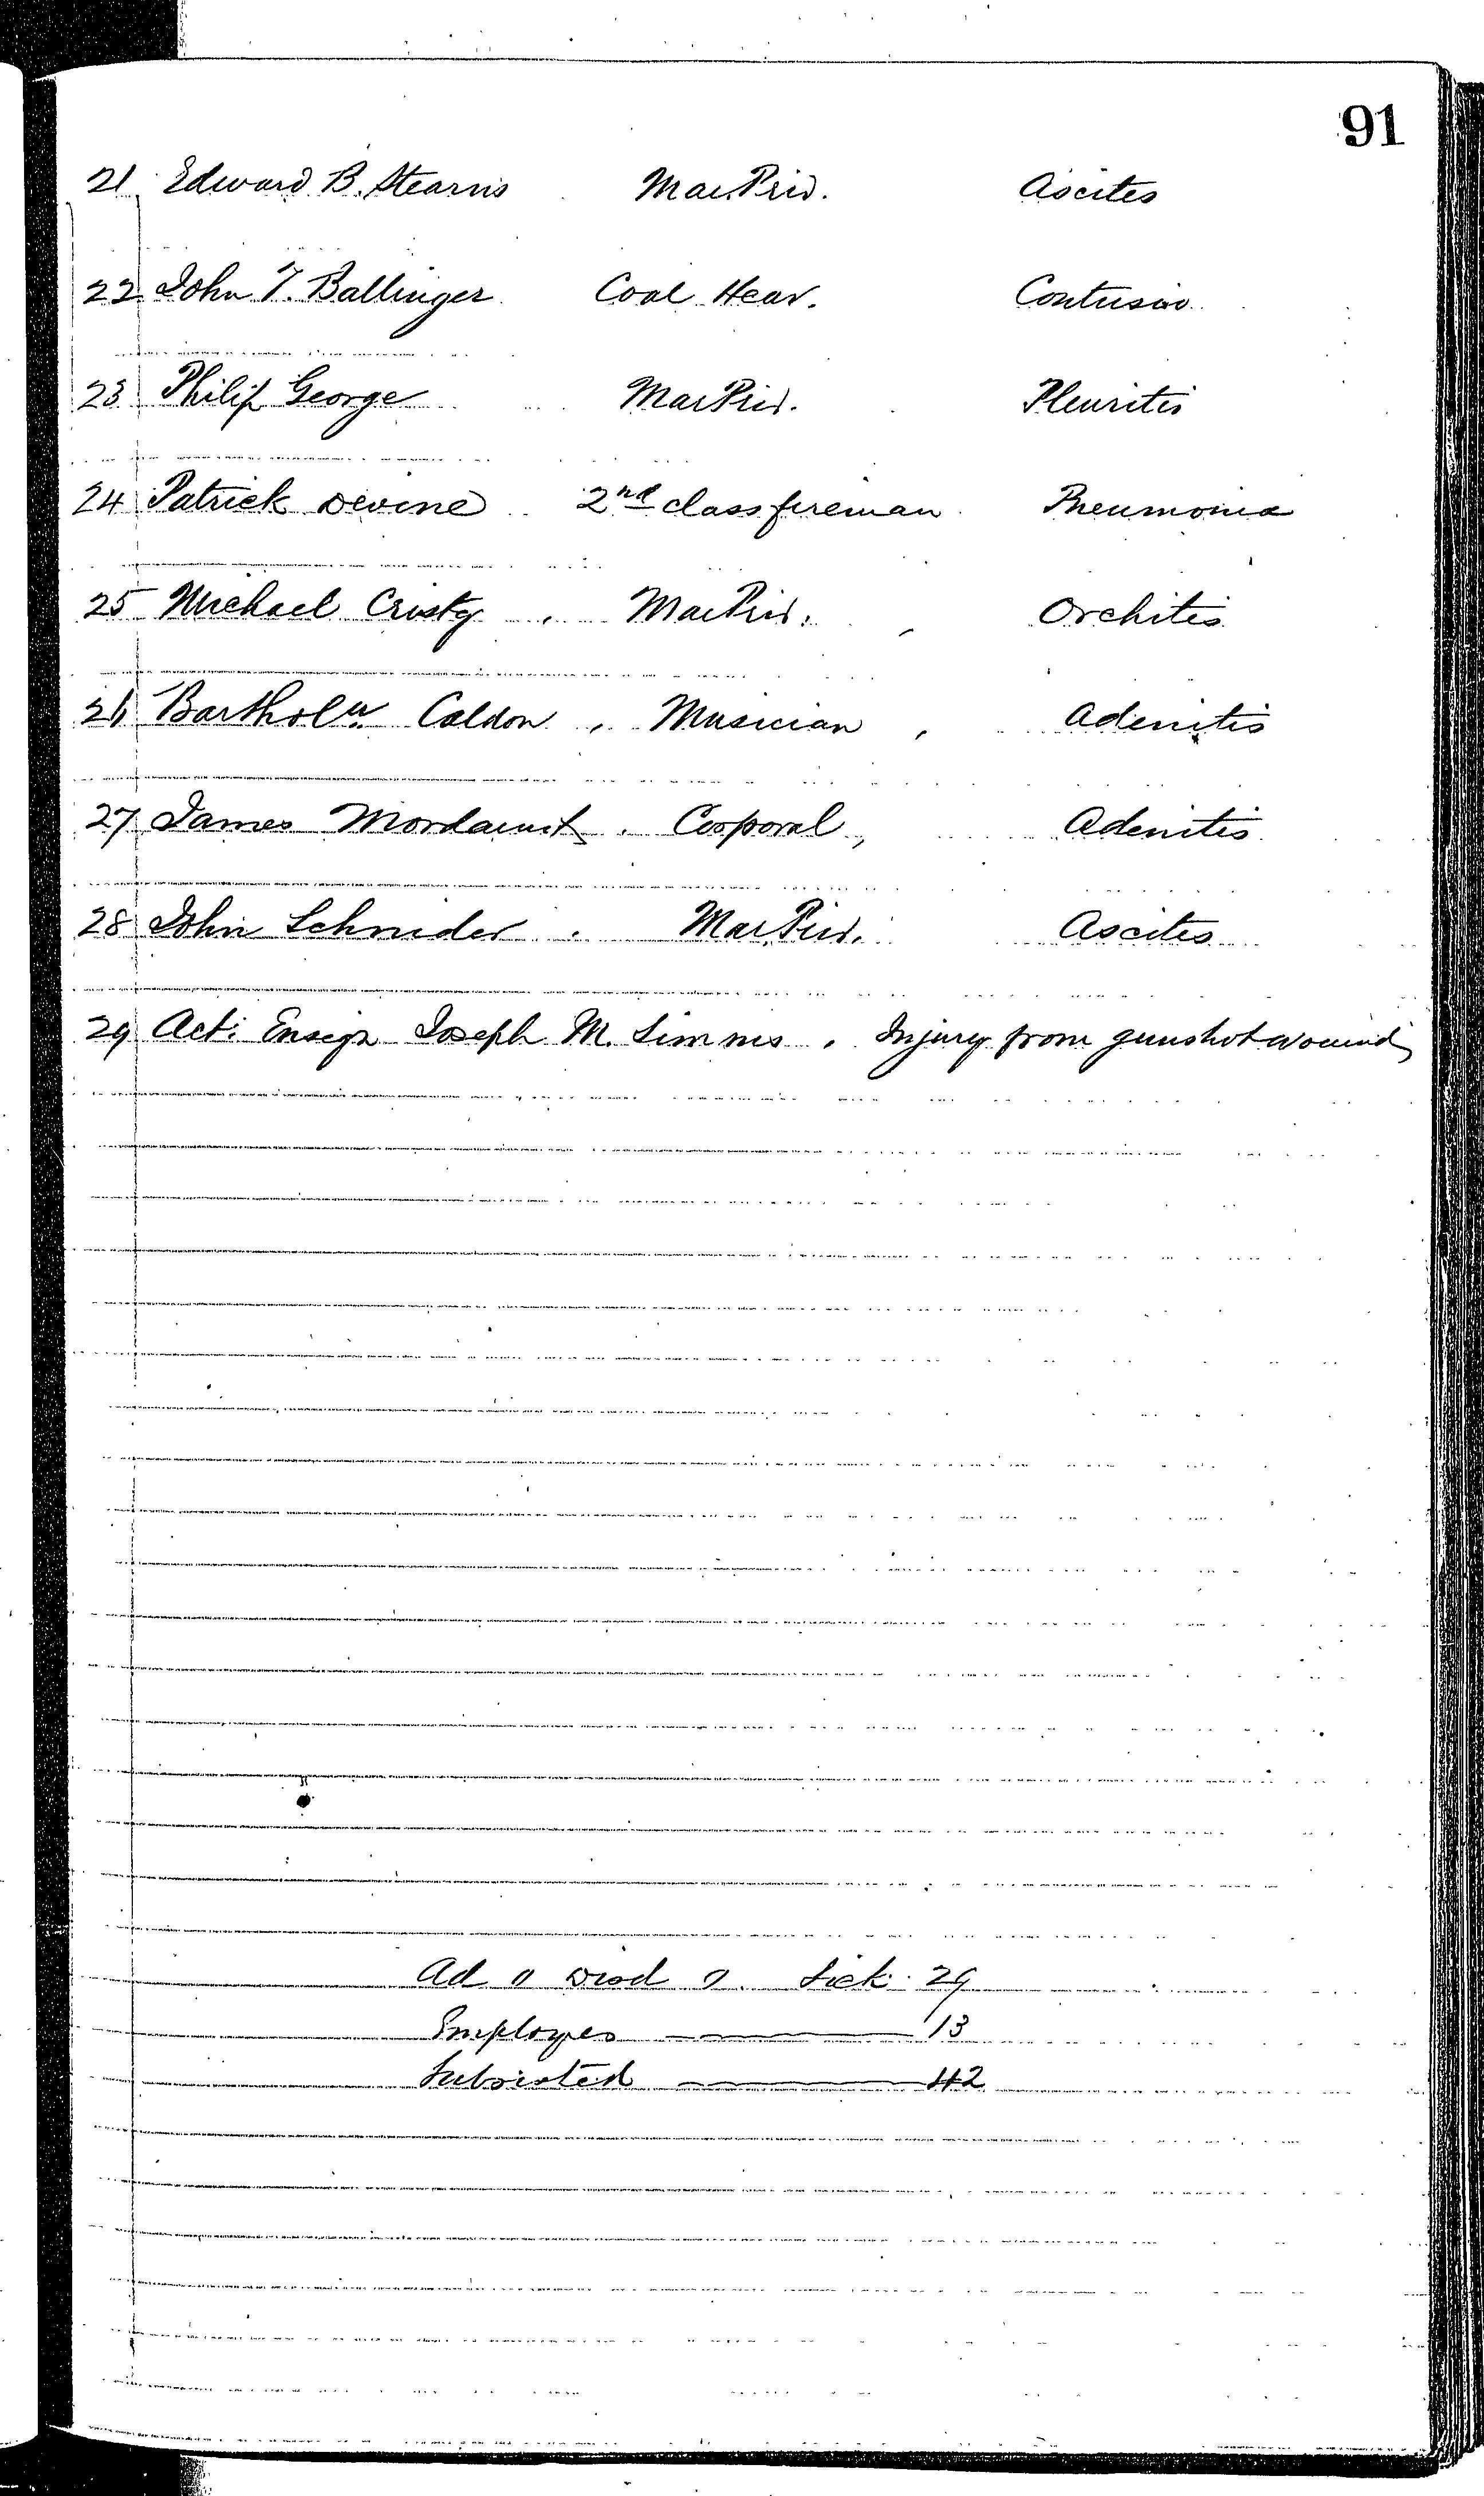 91
21 Edward B. Stearns Mar. Priv. Ascites
22 John T. Ballinger Coal Heav. Contusio
23 Philip George Mar Priv. Pleuritis
24 Patrick Devine 2nd class fireman Pneumonia
25 Michael Cristy Mar Priv. Orchitis
26 Bartholw Caldon Musician Adenitis
27 James Mordaunt Corporal, Adenitis
28 John Schnider Mar. Priv. Ascites
29 Act: Ensign Joseph M. Simms Injury from gunshot wound
Ad 0 Disd 0. Sick 29
Employes 13
Subsisted 42